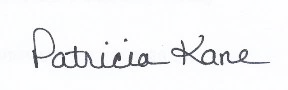 Patricia Kane